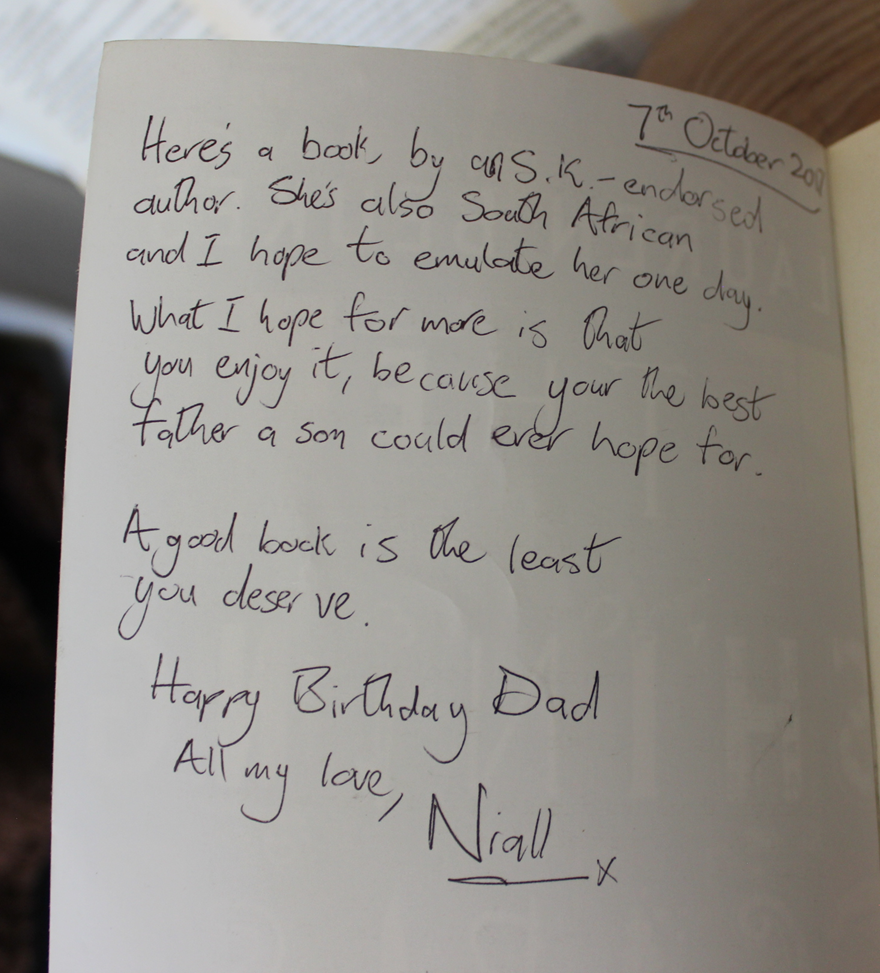 7th October
Here's a book, by an S.K.-endorsed
author. She's also South African
and I hope to emulate her one day.
What I hope for more is that
you enjoy it, because your the best
father a son could ever hope for.
A good book is the least
you deserve.
Happy Birthday Dad
All my love,
Niall x